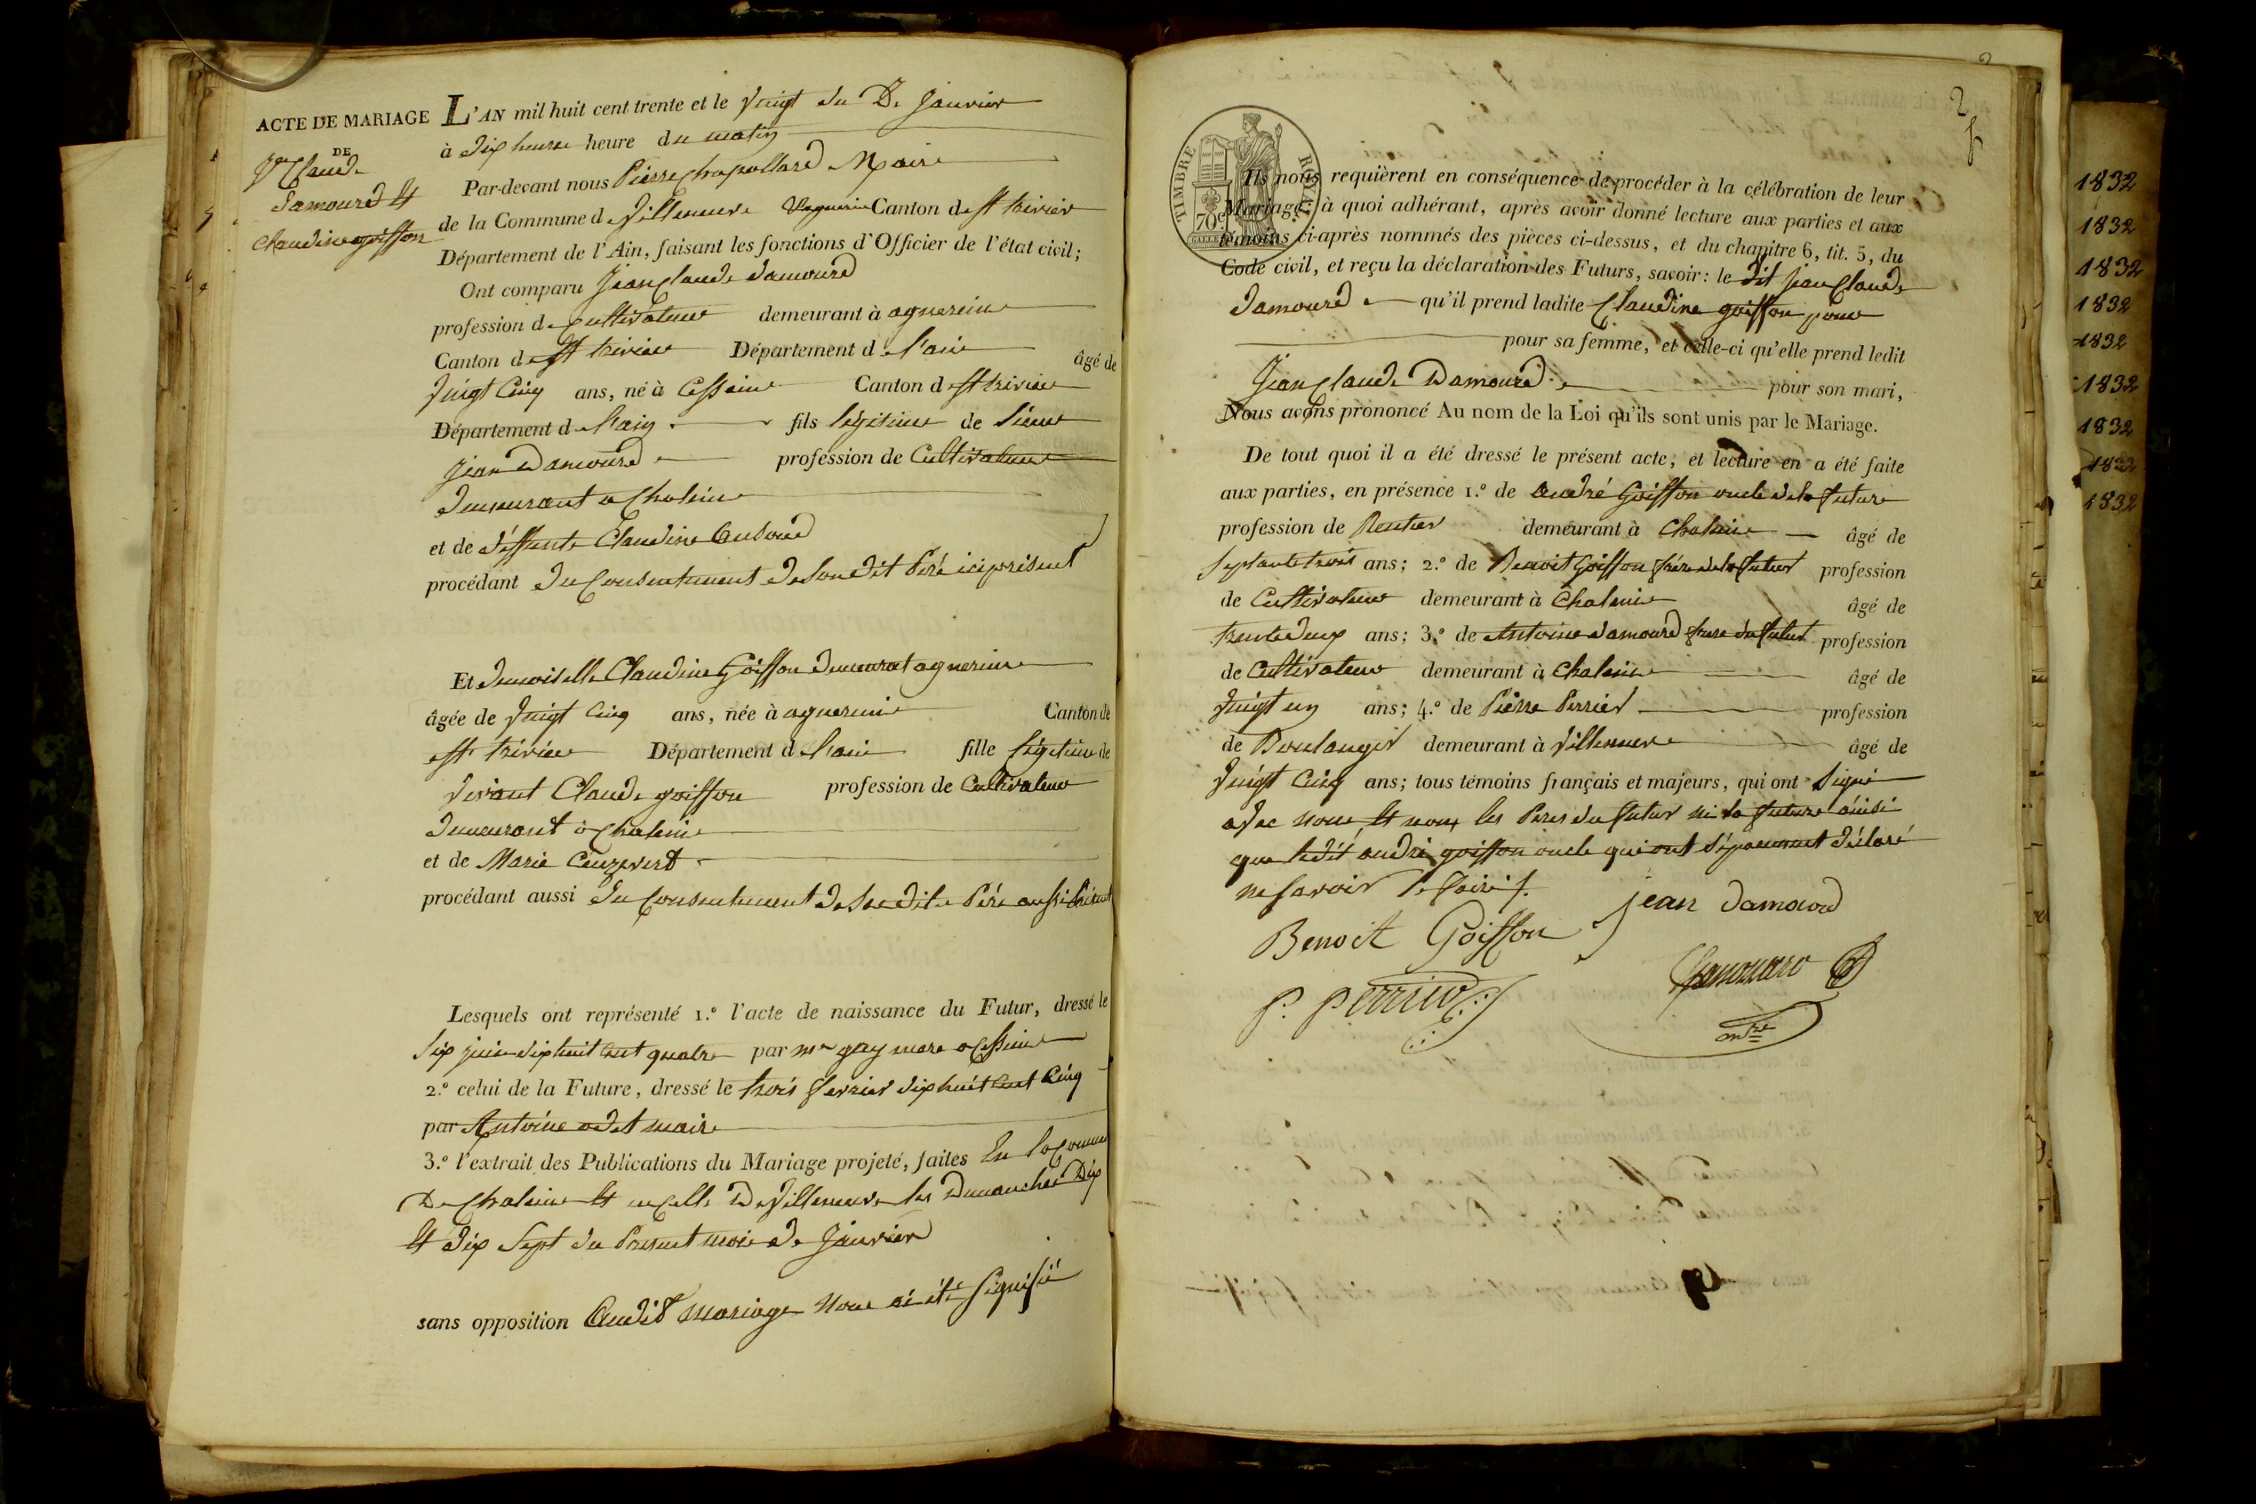 ACTE DE MARIAGE
DE
Jn Claude
Damourd et
Claudine goiffon
L'AN mil huit cent trente et le vingt du D. Janvier
à dix heure heure du matin
Par-devant nous Pierre Chapollard Maire
de la Commune de Villeneuve Canton de st trivier
Département de l'Ain, faisant les fonctions d'Officier de l'état civil;
Ont comparu Jean Claude Damourd
profession de Cultivateur demeurant à agnereine
Canton de st trivier Département de l'ain âgé de
vingt Cinq ans, né à Cesseine Canton de st trivier
Département de l'ain fils légitime de Sieur
Jean Damourd profession de Cultivateur
demeurant a Chaleine
et de déffunte Claudine
procédant du Consentement de Son dit Peré ici présent
Et demoiselle Claudine Goiffon demeurat agnereine
âgée de vingt Cinq ans, née à agnereine Canton de
st trivier Département de l'ain fille légitime de
vivant Claude goiffon profession de Cultivateur
demeurant à Chaleine
et de Marie
procédant aussi du Consentement de Sse dite Pére aussi Présent
Lesquels ont représenté 1.º l'acte de naissance du Futur, dressé le
six juin dix huit cent quatre par mr gay mare a Cesseine
2.º celui de la Future, dressé le trois fevrier dix huit cent Cinq
par Antoine odet maire
3.º l'extrait des Publications du Mariage projeté, faites En la Commune
De Chaleine et en Celle De Villeneuve les Dimanches Dix
et dix Sept du Present mois de Janvier
sans opposition Audit mariage Nous ai été Signifié
2
TIMBRE ROYAL
70 c
Ils nous requièrent en conséquence de procéder à la célébration de leur
Mariage, à quoi adhérant, après avoir donné lecture aux parties et aux
témoins ci-après nommés des pièces ci-dessus, et du chapitre 6, tit. 5, du
Code civil, et reçu la déclaration des Futurs, savoir: le dit Jean Claude
Damourd qu'il prend ladite Claudine goiffon pour
pour sa femme, et celle-ci qu'elle prend ledit
Jean Claude Damourd pour son mari,
Nous avons prononcé Au nom de la Loi qu'ils sont unis par le Mariage.
De tout quoi il a été dressé le présent acte, et lecture en a été faite
aux parties, en présence 1.º de André Goiffon oncle de la future
profession de Rentier demeurant à Chaleine âgé de
septante trois ans; 2.º de Benoit Goiffon frére de la futur profession
de Cultivateur demeurant à Chaleine âgé de
trente deux ans; 3.º de Antoine Damourd frere du futur profession
de Cultivateur demeurant à Chaleine âgé de
vingt un ans; 4.º de Pierre Perrier profession
de Boulanger demeurant à Villeneuve âgé de
vingt Cinq ans; tous témoins français et majeurs, qui ont Signé
avec nous et non les Peres du futur ni la future ainsi
que ledit andré goiffon oncle qui ont séparement déclaré
ne savoir le faire
Jean Damourd
Benoit Goiffon
P. Perrier
mre
1832
1832
1832
1832
1832
1832
1832
1832
1832